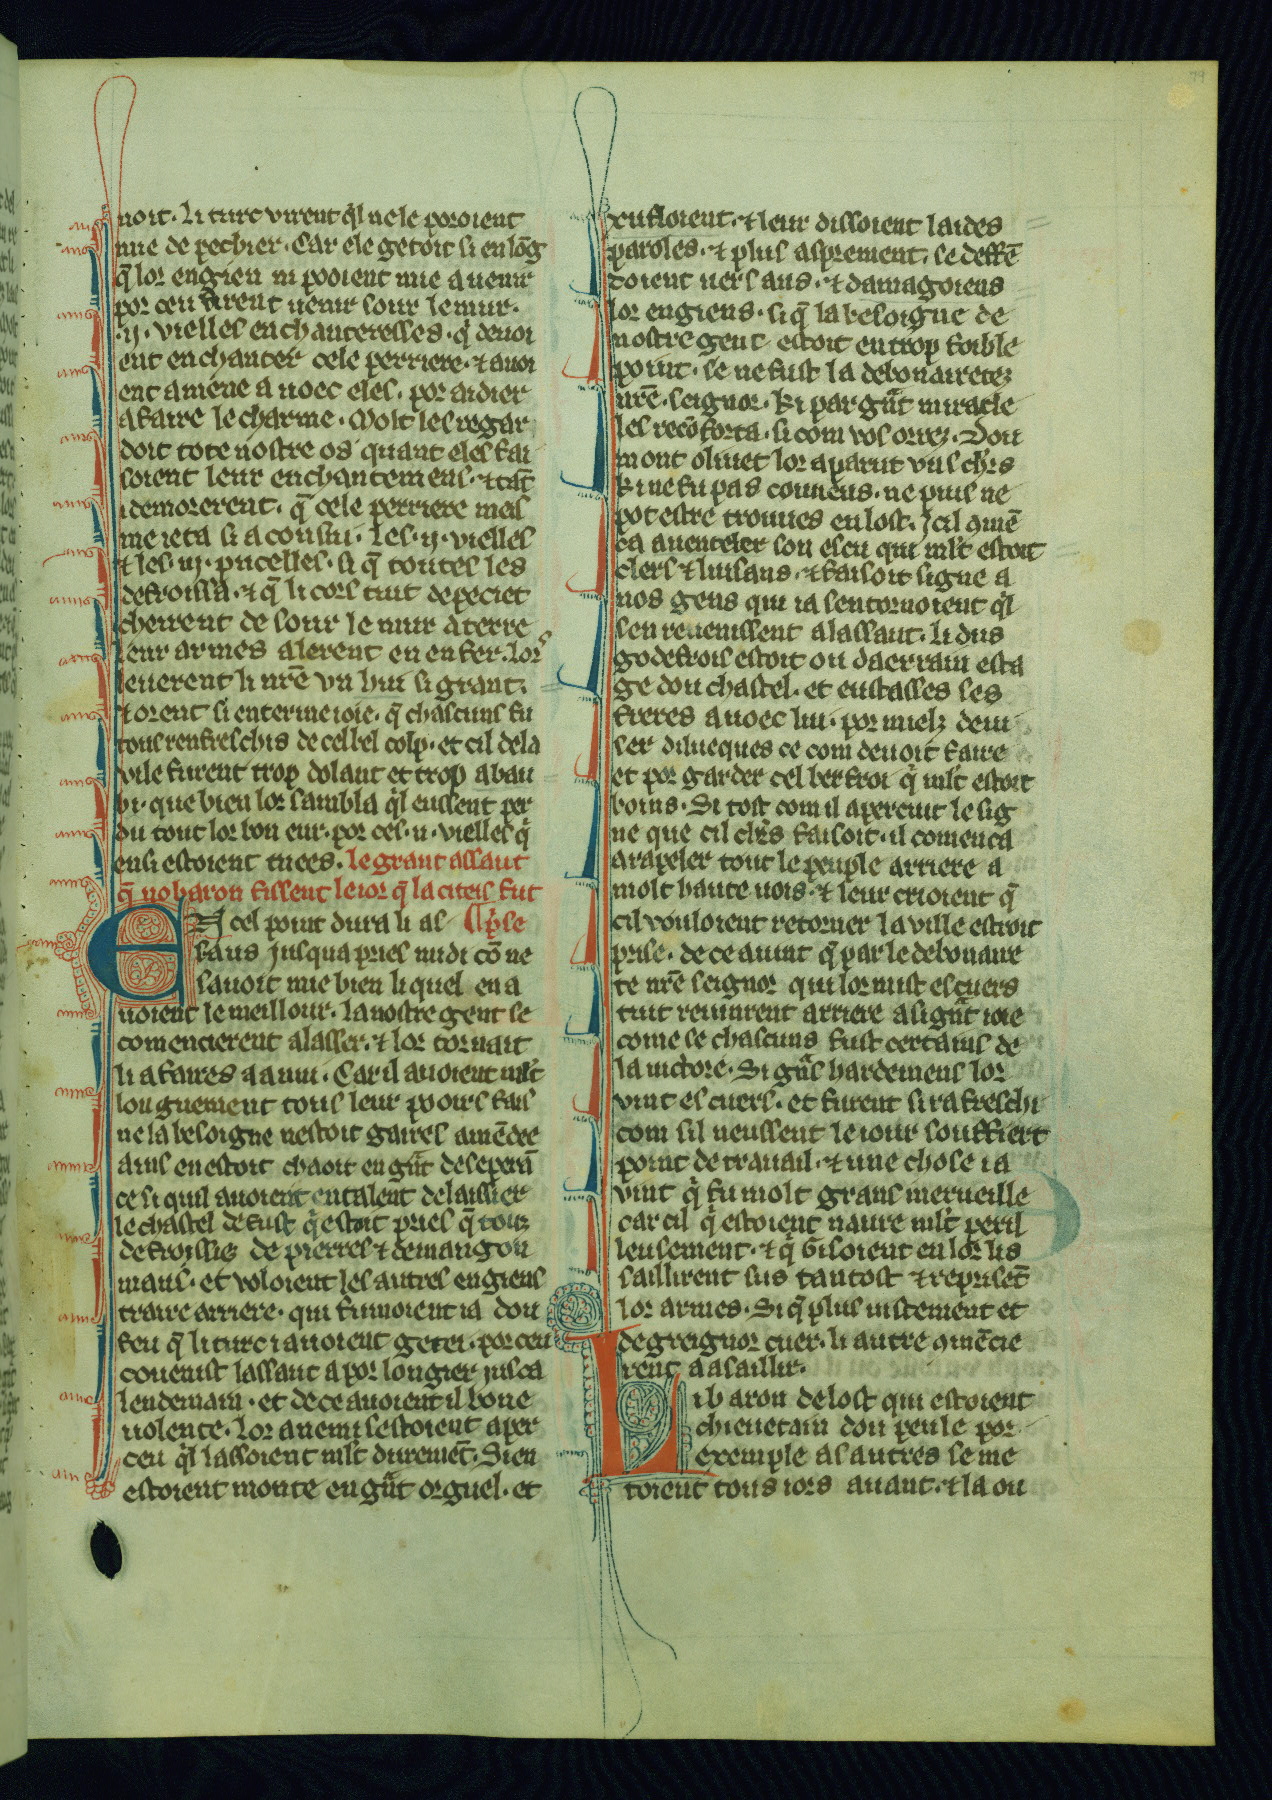 noit. li turc virent q̇l ne le poroient
mie de pechier. Car ele getoit si en lōg
q̄ lor engien ni pooient mie auenir
por ceu firent uenir sour le mur.
.ij. vielles enchanteresses. q̇ deuoi
ent enchanter cele perriere. ⁊ auoi
ent amene auoec eles. por aidier
a faire le charme. Molt les regar
doit tote nostre os quant eles fai
soient leur enchantemens. ⁊ tāt
i demorerent. q̄ cele perriere meis
me ieta si a consiu. les .ij. vielles
⁊ les .iij. pucelles. si q̄ toutes les
defroissa. ⁊ q̄ li cors tuit depeciet
cheirent de sour le mur a terre
leur armes alerent en enfer. lors
leuerent li nr̄e vn hui si grant.
⁊ orent si enterine ioie. q̄ chascuns fu
tous renfreschis de cel bel colp. et cil de la
vile furent trop dolant et trop abau
bi. que bien lor sambla q̇l eussent per
du tout lor bon eur. por ces .ii. vielles q̇
ensi estoient tuees. le grant assaut
q̄ no baron fissent le ior q̄ la citeis fut
En cel point dura li as p̄se
saus jusqua pries midi cō ne
sauoit mie bien li quel en a
uoient le meillour. la nostre gent se
comencierent alasser. ⁊ lor tornait
li afaires a anui. Car il auoient ml̄t
longuement tous leur pooirs fais
ne la besoigne nestoit gaires amēdee
ains en estoit chaoit en gn̄t deseperā
ce si quil auoient en talent delaissier
le chastel de fust q̇ estoit pries q̄ touz
defroissiez de pierres ⁊ de mangon
niaus. et voloient les autres engiens
traire arriere. qui fumoient ia dou
feu q̄ li turc i auoient getei. por ceu
couenist lassaut a por longier jusca
lendemain. et de ce auoient il bone
uolente. Lor anemi sestoient aper
ceu q̇l lassoient ml̄t duremēt. Si en
estoient monte en gn̄t orguel. et
rufloient. ⁊ leur dissoient laides
paroles. ⁊ plus asprement. se deffē
doient uers aus. ⁊ damagoiens
lor engiens. si q̄ la besoigne de
nostre gent estoit en trop foible
point. se ne fust la debonairetez
nr̄e seignor. ki par gn̄t miracle
les recōforta. si com vos orrez. Dou
mont oliuet lor aparut vns chr̄s
ki ne fu pas conneus. ne puis ne
pot estre trouues en lost. icil 9mē
ca a uenteler son escu qui ml̄t estoit
clers ⁊ luisans. ⁊ faisoit signe a
nos gens qui ia sentornoient q̇l
sen reuenissent alassaut. li dus
godefrois estoit ou daerrain esta
ge dou chastel. et eustasses ses
freres auoec lui. por mielz deui
ser dilueques ce com deuoit faire
et por garder cel berfroi q̇ ml̄t estoit
boins. Si tost com il apercuit le sig
ne que cil chr̄s faisoit. il comenca
a rapeler tout le peuple arriere a
molt haute uois. ⁊ leur crioient q̄
cil vouloient retorner la ville estoit
prise. de ce auint q̄ par le debonaire
te nr̄e seignor qui lor mist es cuers
tuit reuinrent arriere a si gn̄t ioie
come se chascuns fust certains de
la uictore. Si gn̄s hardemens lor
vint es cuers. et furent si rafreschi
com sil neussent le iour souffiert
point de trauail. ⁊ une chose i a
vint q̇ fu molt grans merueille
car cil q̇ estoient naure ml̄t peril
leusement. ⁊ q̇ gisoient en lor lis
saillirent sus tantost ⁊ reprisēt
lor armes. Si q̄ plus uistement et
de greignor cuer. li autre 9mēcie
rent a asaillir.
Li baron de lost qui estoient
chieuetain dou peule por
exemple as autres se me
toient tous iors auant. ⁊ la ou